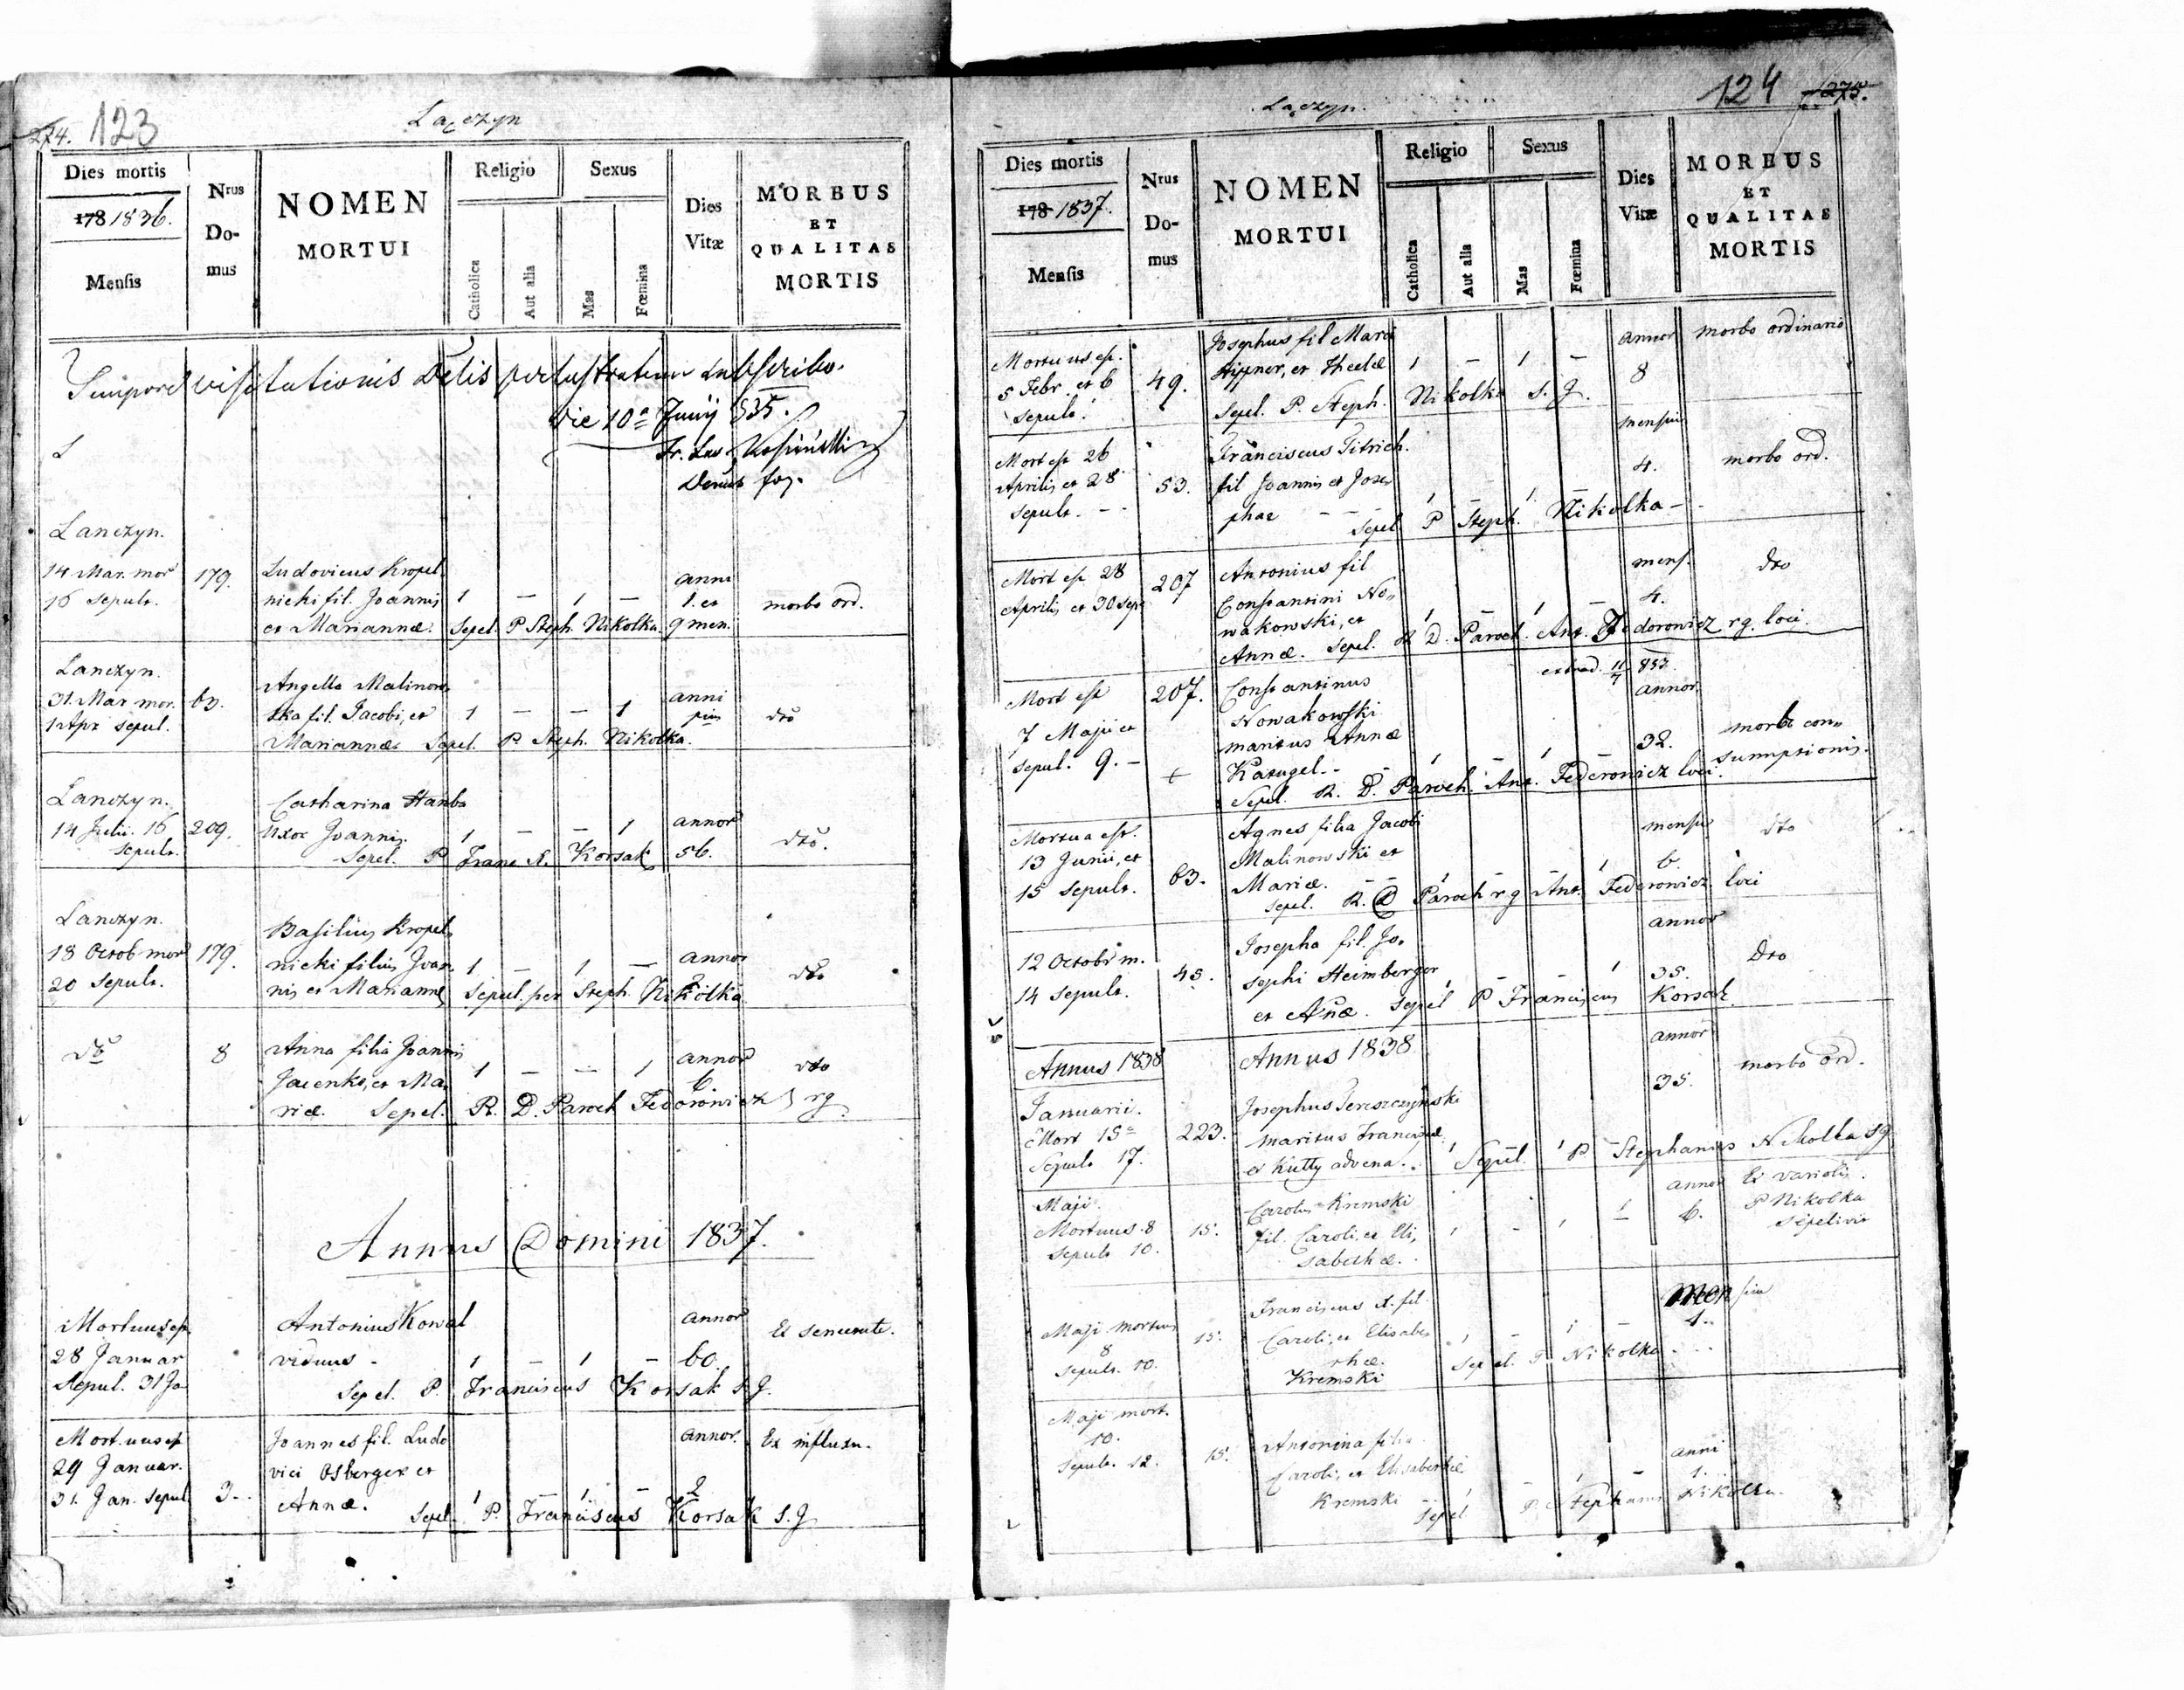 274. 123
Lączyn
Dies mortis
178 1836.
Mensis
Nrus Do- mus
NOMEN MORTUI
Religio
Catholica
Aut alia
Sexus
Mas
Fœmina
Dies Vitæ
MORBUS ET QUALITAS MORTIS
visitationis Delis perlustratum subscribo.
Die 10a Junij 835.
Lanczyn.
14 Mar. mor 179. Ludovicus Kropel anni
16 sepult. nicki fil. Joannis 1 — 1 — 1. et morbo ord.
et Mariannæ. Sepel. P Steph. Nikolka 9 men.
Lanczyn. Angella Malinow
31. Mar mor. 63. ska fil. Jacobi, et 1 — — 1 anni dto
1 Apr sepul. Mariannæ Sepel. P. Steph. Nikolka.
Lanczyn. Catharina
14 Julii. 16 209. Uxor Joannis. 1 — — 1 annor dto.
sepult. Sepel. P Franc X. Korsak 56.
Lanczyn. Basilius Kropel
18 Octob mor 179. nicki filius Joan 1 — 1 — annor dto
20 Sepult. nis et Mariannæ Sepul. per Steph. Nikolka 2
dto 8 Anna filia Joannis annor dto
Jacenko, et Ma 1 — — 1 6
riæ. Sepel. R. D. Paroch Fedorowicz rg.
Annus Domini 1837.
Mortuus est Antonius Kowal annor Ex senectute.
28 Januar viduus - 1 — 1 — 60.
Sepul. 31 Ja Sepel. P. Franciscus Korsak S.J.
Mort.uus est Joannes fil. Ludo annor. Ex influxu.
29 Januar. vici Osberger et
31. Jan. Sepul 3- Annæ. 1 — 1 — 2
Sepel. P. Franciscus Korsak S.J
124 275.
Lączyn.
Dies mortis
178 1837.
Mensis
Nrus Do- mus
NOMEN MORTUI
Religio
Catholica
Aut alia
Sexus
Mas
Fœmina
Dies Vitæ
MORBUS ET QUALITAS MORTIS
Mortuus est. Josephus fil Marci annor morbo ordinario
5 Febr. et 6 49. et Theclæ 1 — 1 — 8
sepult. Sepel. P. Steph. Nikolka S.J.
Mort est 26 Franciscus Titrich. mensium
Aprilis et 28 53. fil Joannis et Jose 4. morbo ord.
sepult. - - phae - - 1 — 1 —
Sepel P Steph. Nikolka -
Mort est 28 207 Antonius fil mens. dto
Aprilis et 30 sep Constantini No 4.
wakowski, et 1 — 1 —
Annæ. Sepel. R D. Paroch. Ant. Fedorowicz rg. loci.
Mort est 207. Constantinus annor.
7 Maji et Nowakowski
sepul. 9. - maritus Annæ 32. morbo con
+ Katugel.- 1 — 1 — sumptionis.
Sepel. R. D. Paroch. Ant. Federowicz loci.
Mortua est. Agnes filia Jacobi mensiu dto
13 Junii, et Malinowski et 6.
15 Sepult. 63. Mariæ. 1 — — 1
Sepel. R. D Paroch rg Ant. Federowicz loci
12 Octobr m. Josepha fil. Jo annor Dto
14 Sepult. 45. sephi Steimberger 1 — — 1 35.
et Añæ. Sepel P Franciscus Korsak
Annus 1838 Annus 1838
Januarii. Josephus Tereszczynski annor morbo ord.
Mort 15a 223. maritus Franciscæ 35.
Sepult 17. et Kutty advena. 1 — 1 —
Sepul. P Stephanus Nikolka SJ
Maji. Carolus Kremski annor Ex variolis.
Mortuus 8 15. fil. Caroli, et Eli 1 — 1 — 6. P Nikolka
sepult 10. sabethæ. sepelivit
Maji mortuus Franciscus X. fil. Men sium
8 15. Caroli, et Elisabe 1 — 1 — 1.
Sepult. 10. thæ. Sepel. P. Nikolka
Kremski
Maji mort. Antonina filia anni
10. 15. Caroli, et Elisabethæ 1.
Sepult. 12. Kremski
Sepel P. Stephanus Nikolka.